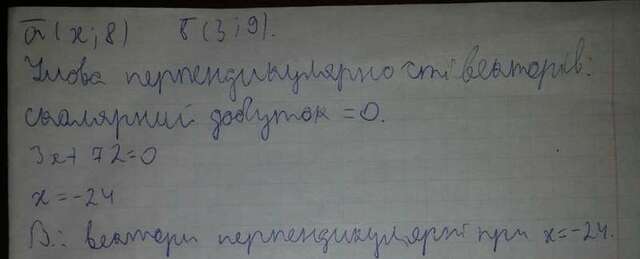 a̅(x; 8) b̅(3; 9).
Умова перпендикулярності векторів:
скалярний добуток = 0.
3x + 72 = 0
x = -24
В.: вектори перпендикулярні при x = -24.